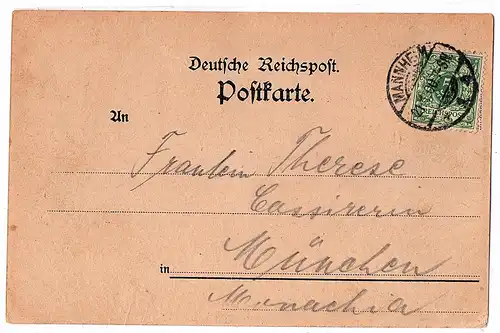 Deutsche Reichspost.
Postkarte.
MANNHEIM
An
Fraulein Therese
Cassirerin
München
in
Monachia